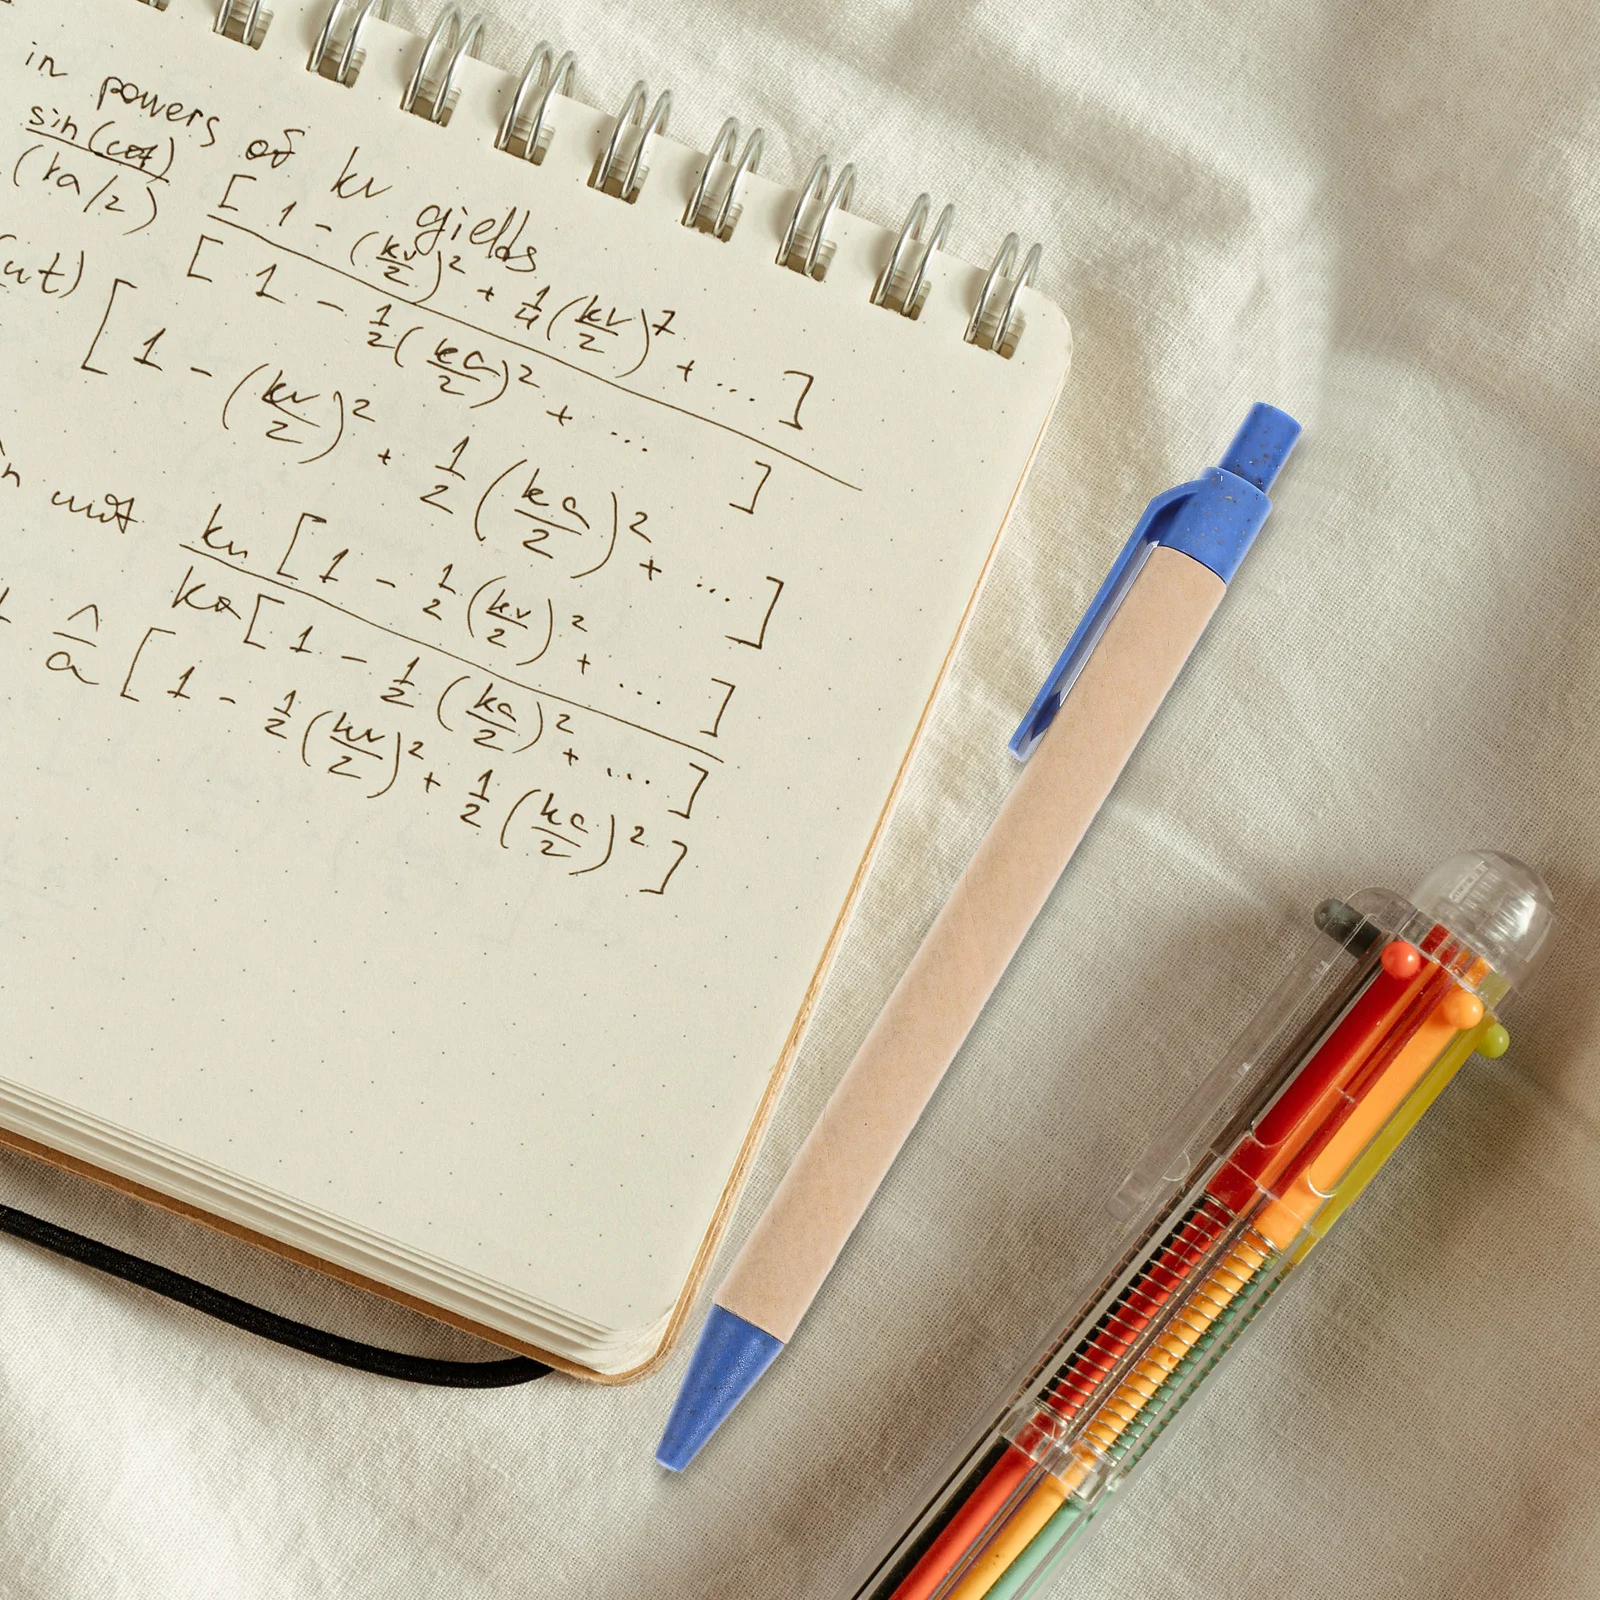 in powers of kv gields
sin(cot) [ 1 - (kv/2)² + 1/4 (kv/2)⁷ + ... ]
(ka/2) [ 1 - 1/2 (ka/2)² + ... ]
ut) [ 1 - (kv/2)² + 1/2 (ka/2)² + ... ]
kv [ 1 - 1/2 (kv/2)² + ... ]
ka [ 1 - 1/2 (ka/2)² + ... ]
[ 1 - 1/2 (kv/2)² + 1/2 (ka/2)² ]